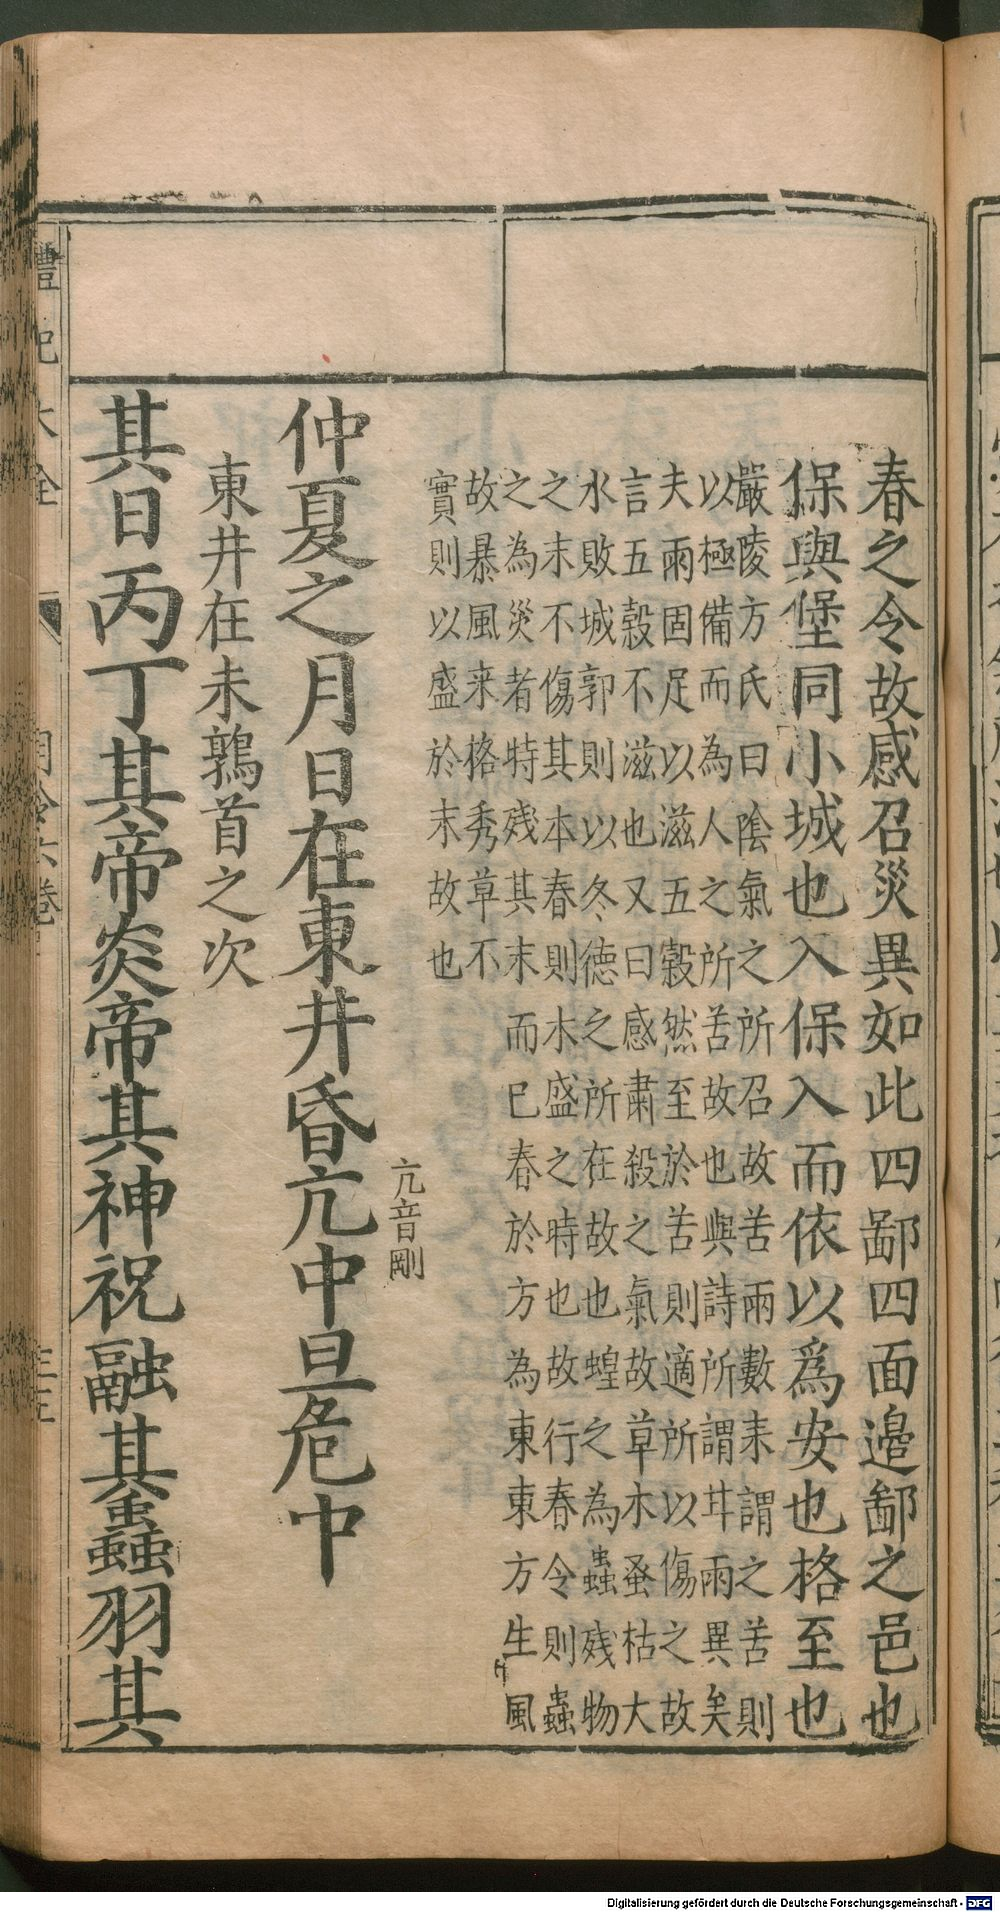 春之令故感召災異如此四鄙四面邊鄙之邑也
保與堡同小城也入保入而依以爲安也格至也
嚴陵方氏曰陰氣之所召故苦兩數耒謂之苦則
以極備而為人之所苦故也與詩所謂甘兩異矣
夫兩固足以滋五穀然至於苦則適所以傷之故
言五穀不滋也又曰感肅殺之氣故草木蚤枯大
水敗城郭則以冬德之所在故也蝗之為蟲残物
之末不傷其本春則木盛之時也故行春令則蟲
之為災者特残其末而已春於方為東東方生風
故暴風来格秀草不
實則以盛於末故也
亢音剛
仲夏之月日在東井昏亢中旦危中
東井在未鶉首之次
其日丙丁其帝炎帝其神祝融其蟲羽其
禮記大全
月令六卷
Digitalisierung gefördert durch die Deutsche Forschungsgemeinschaft - DFG